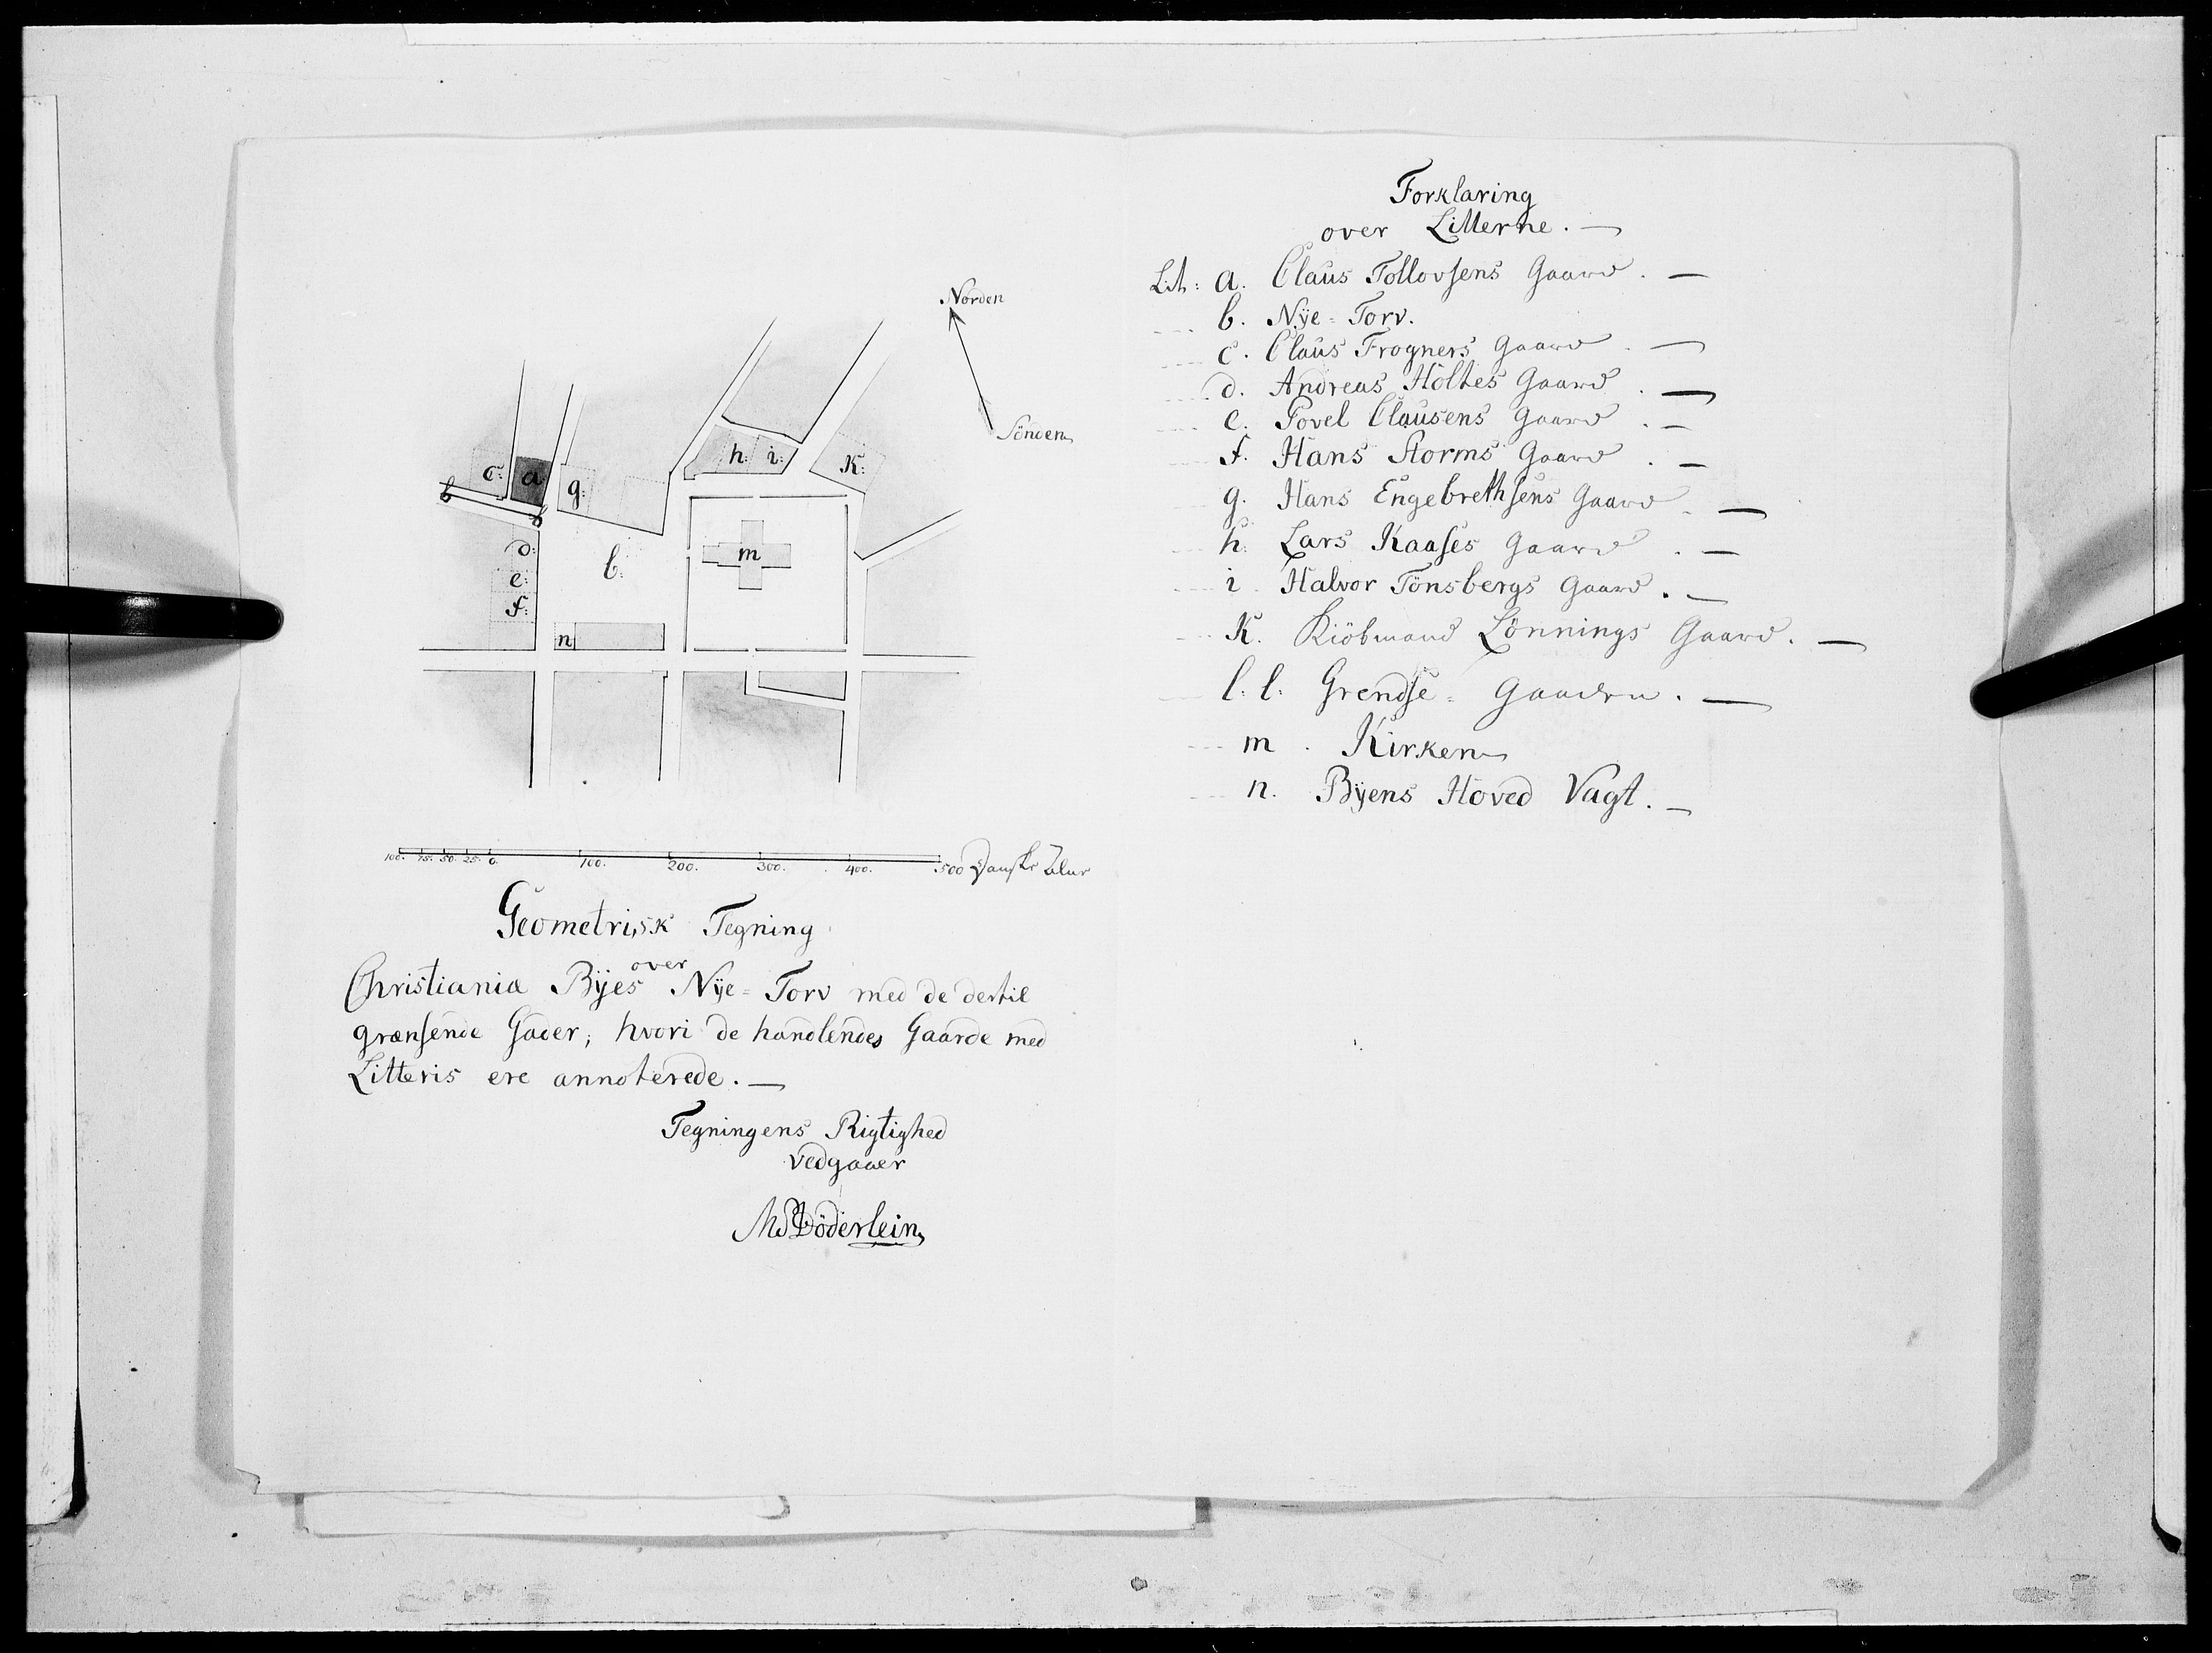 Norden
Sönden
c: a g: h: i: K:
l
l
d: b: m
e:
f:
n
100. 75. 50. 25. 0. 100. 200. 300. 400. 500 Danske Alne
Geometrisk Tegning
over
Christiania Byes Nÿe=Torv med de dertil
grænsende Gader; hvori de handlendes Gaarde med
Litteris ere annoterede. —
Tegningens Rigtighed
vedgaaer
Döderlein
Forklaring
over Litterne. —
Lit: a. Claus Tollovsens Gaard. —
b. Nÿe=Torv.
c. Claus Frogners Gaard. —
d. Andreas Holtes Gaard. —
e. Povel Clausens Gaard. —
f. Hans Storms Gaard. —
g. Hans Engebrethsens Gaard. —
h. Lars Kaases Gaard. —
i. Halvor Tönsbergs Gaard. —
K. Kiöbmand Lönnings Gaard. —
l. l. Grendse=Gaden. —
m. Kirken
n. Bÿens Hoved Vagt. —